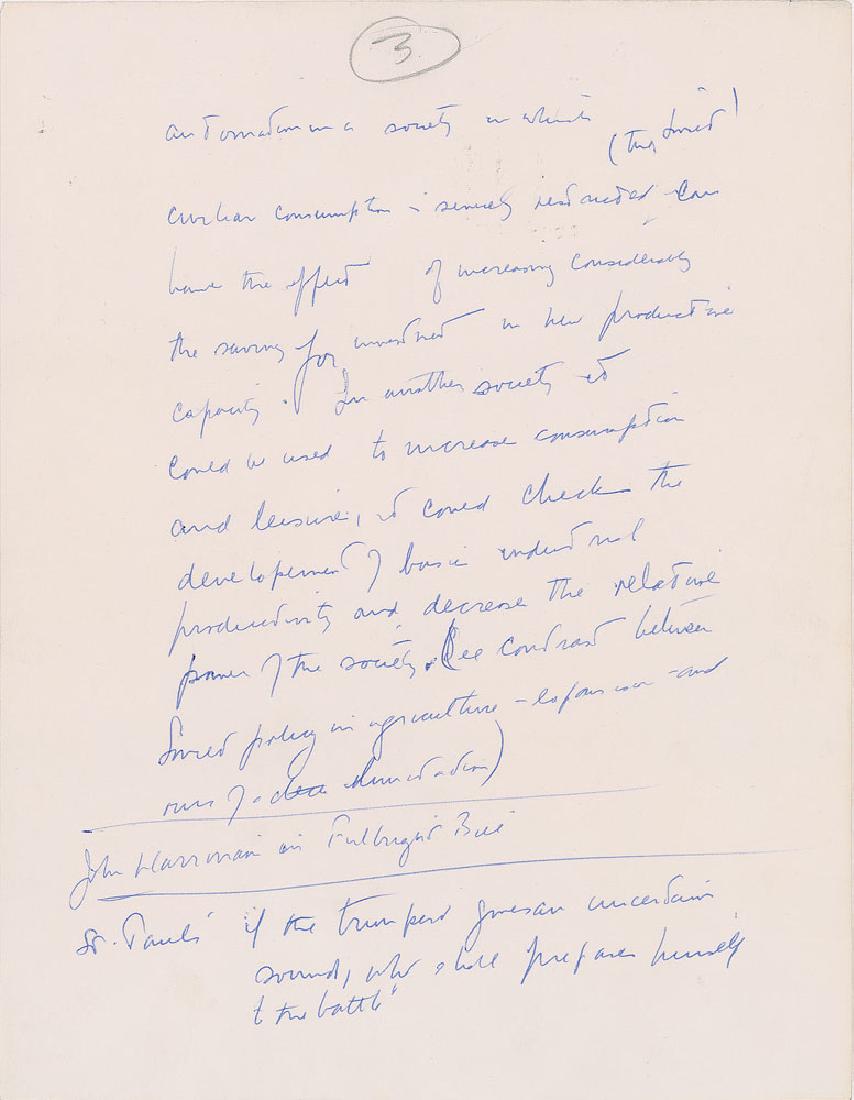 3
automation in a society in which
(the Soviet)
civilian consumption is severely restricted can
have the effect of increasing considerably
the savings for investment in new productive
capacity. In another society it
could be used to increase consumption
and leisure, it could check the
developement of basic industrial
productivity and decrease the relative
power of the society. (See contrast between
Soviet policy in agriculture - expansion - and
ours of limitation)
John Harriman in Fulbright Bill
St. Paul's if the trumpet gives an uncertain
sound, who shall prepare himself
to the battle"